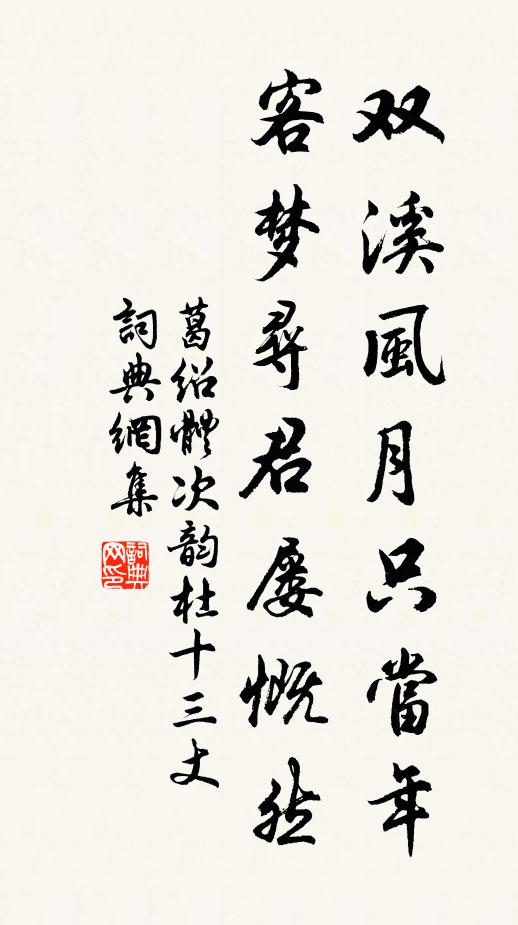 双溪風月只當年
客梦尋君屡慨然
葛绍體次韵杜十三丈
詞典網集
詞典网印